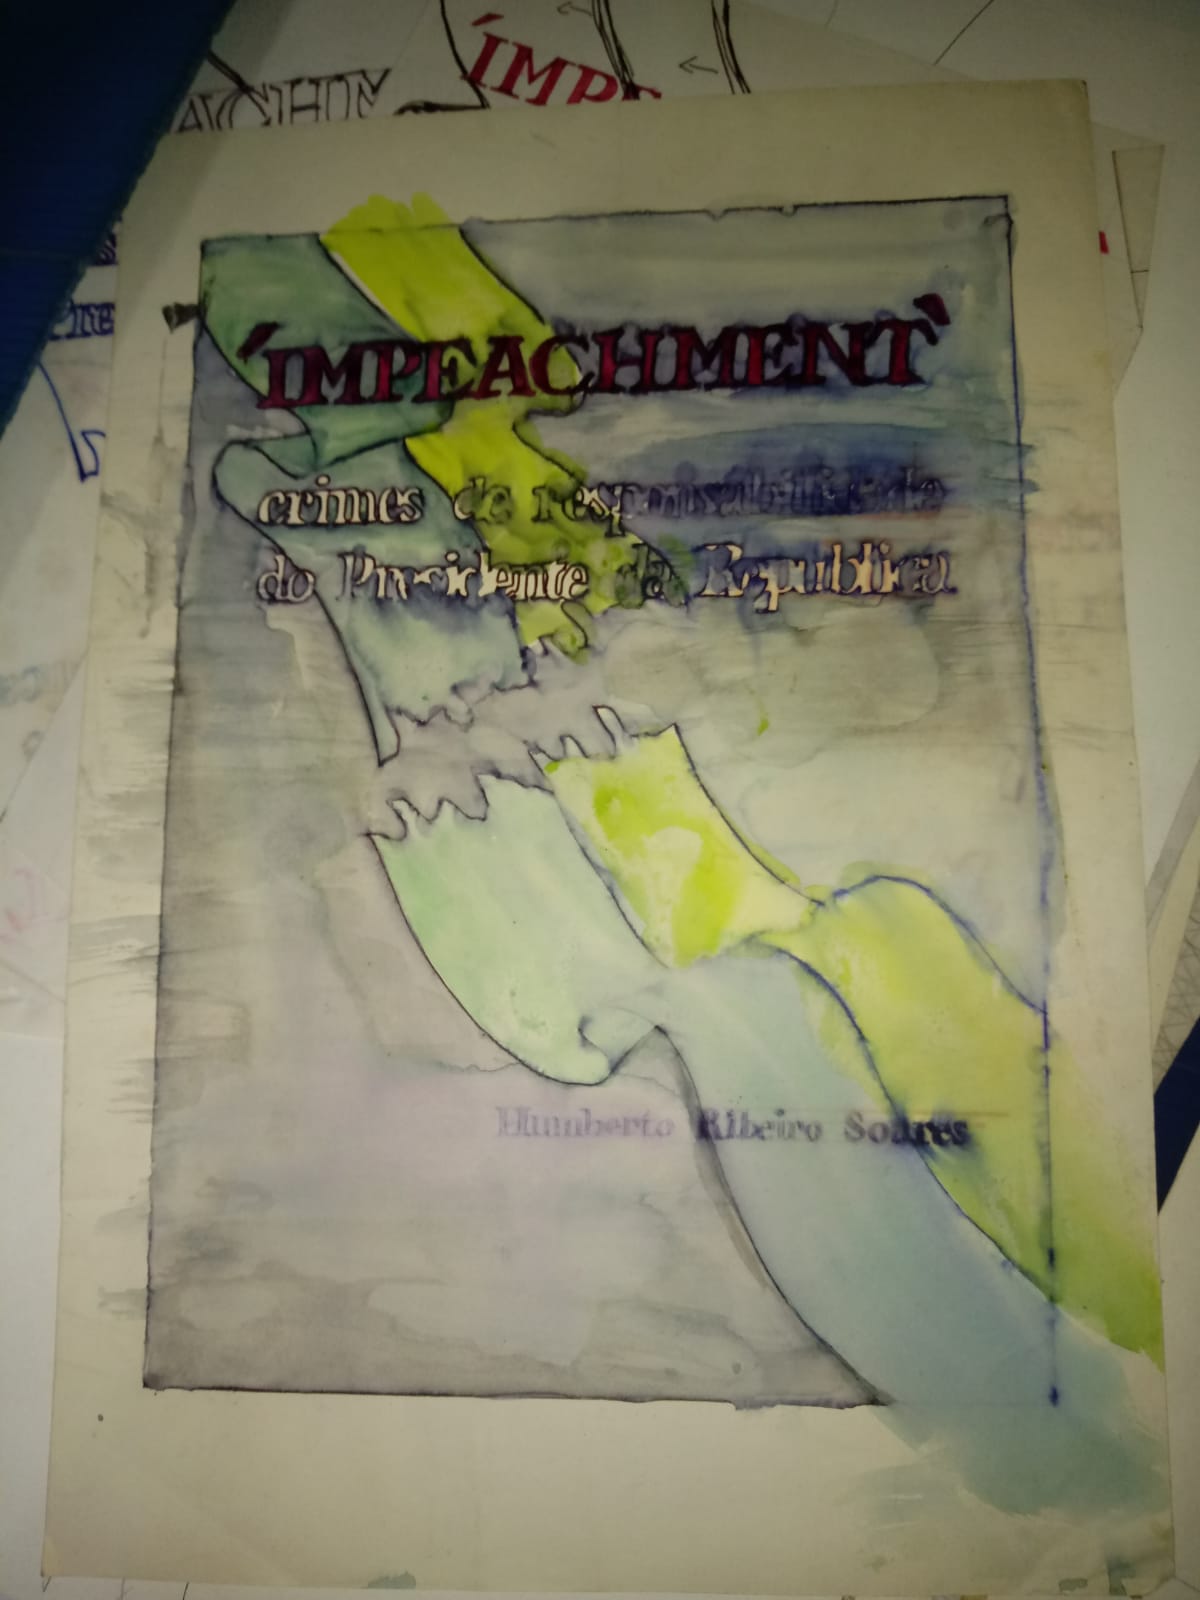 ACHM
ÍMPE
Pre
'IMPEACHMENT'
crimes de responsabilidade
do Presidente da Republica
Humberto Ribeiro Soares